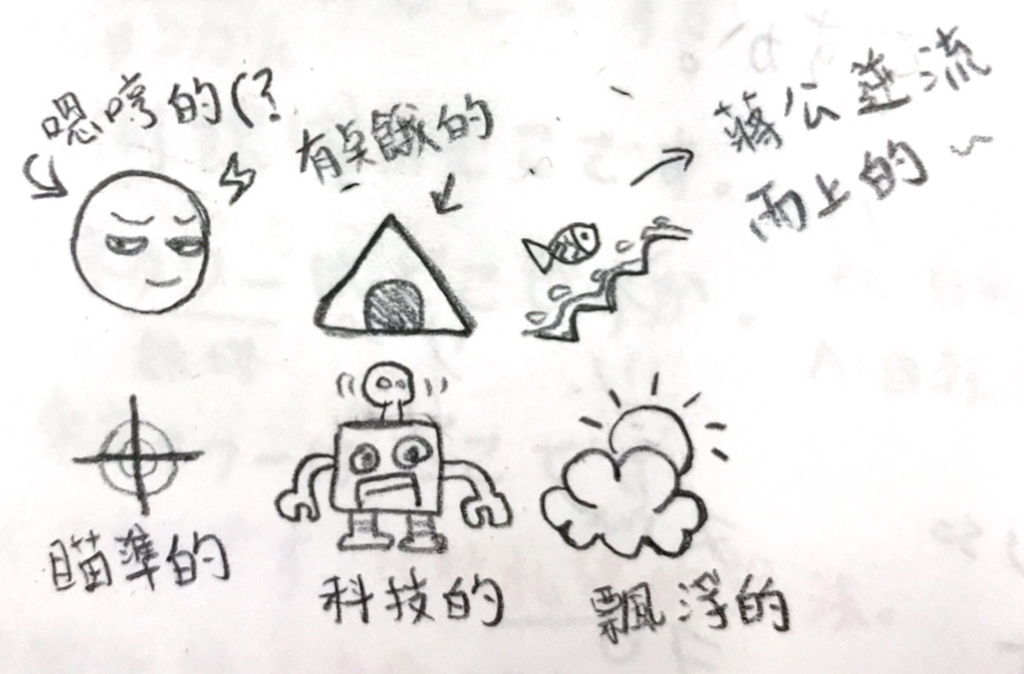 嗯哼的(?
有点餓的
蔣公逆流
而上的~
瞄準的
科技的
飄浮的